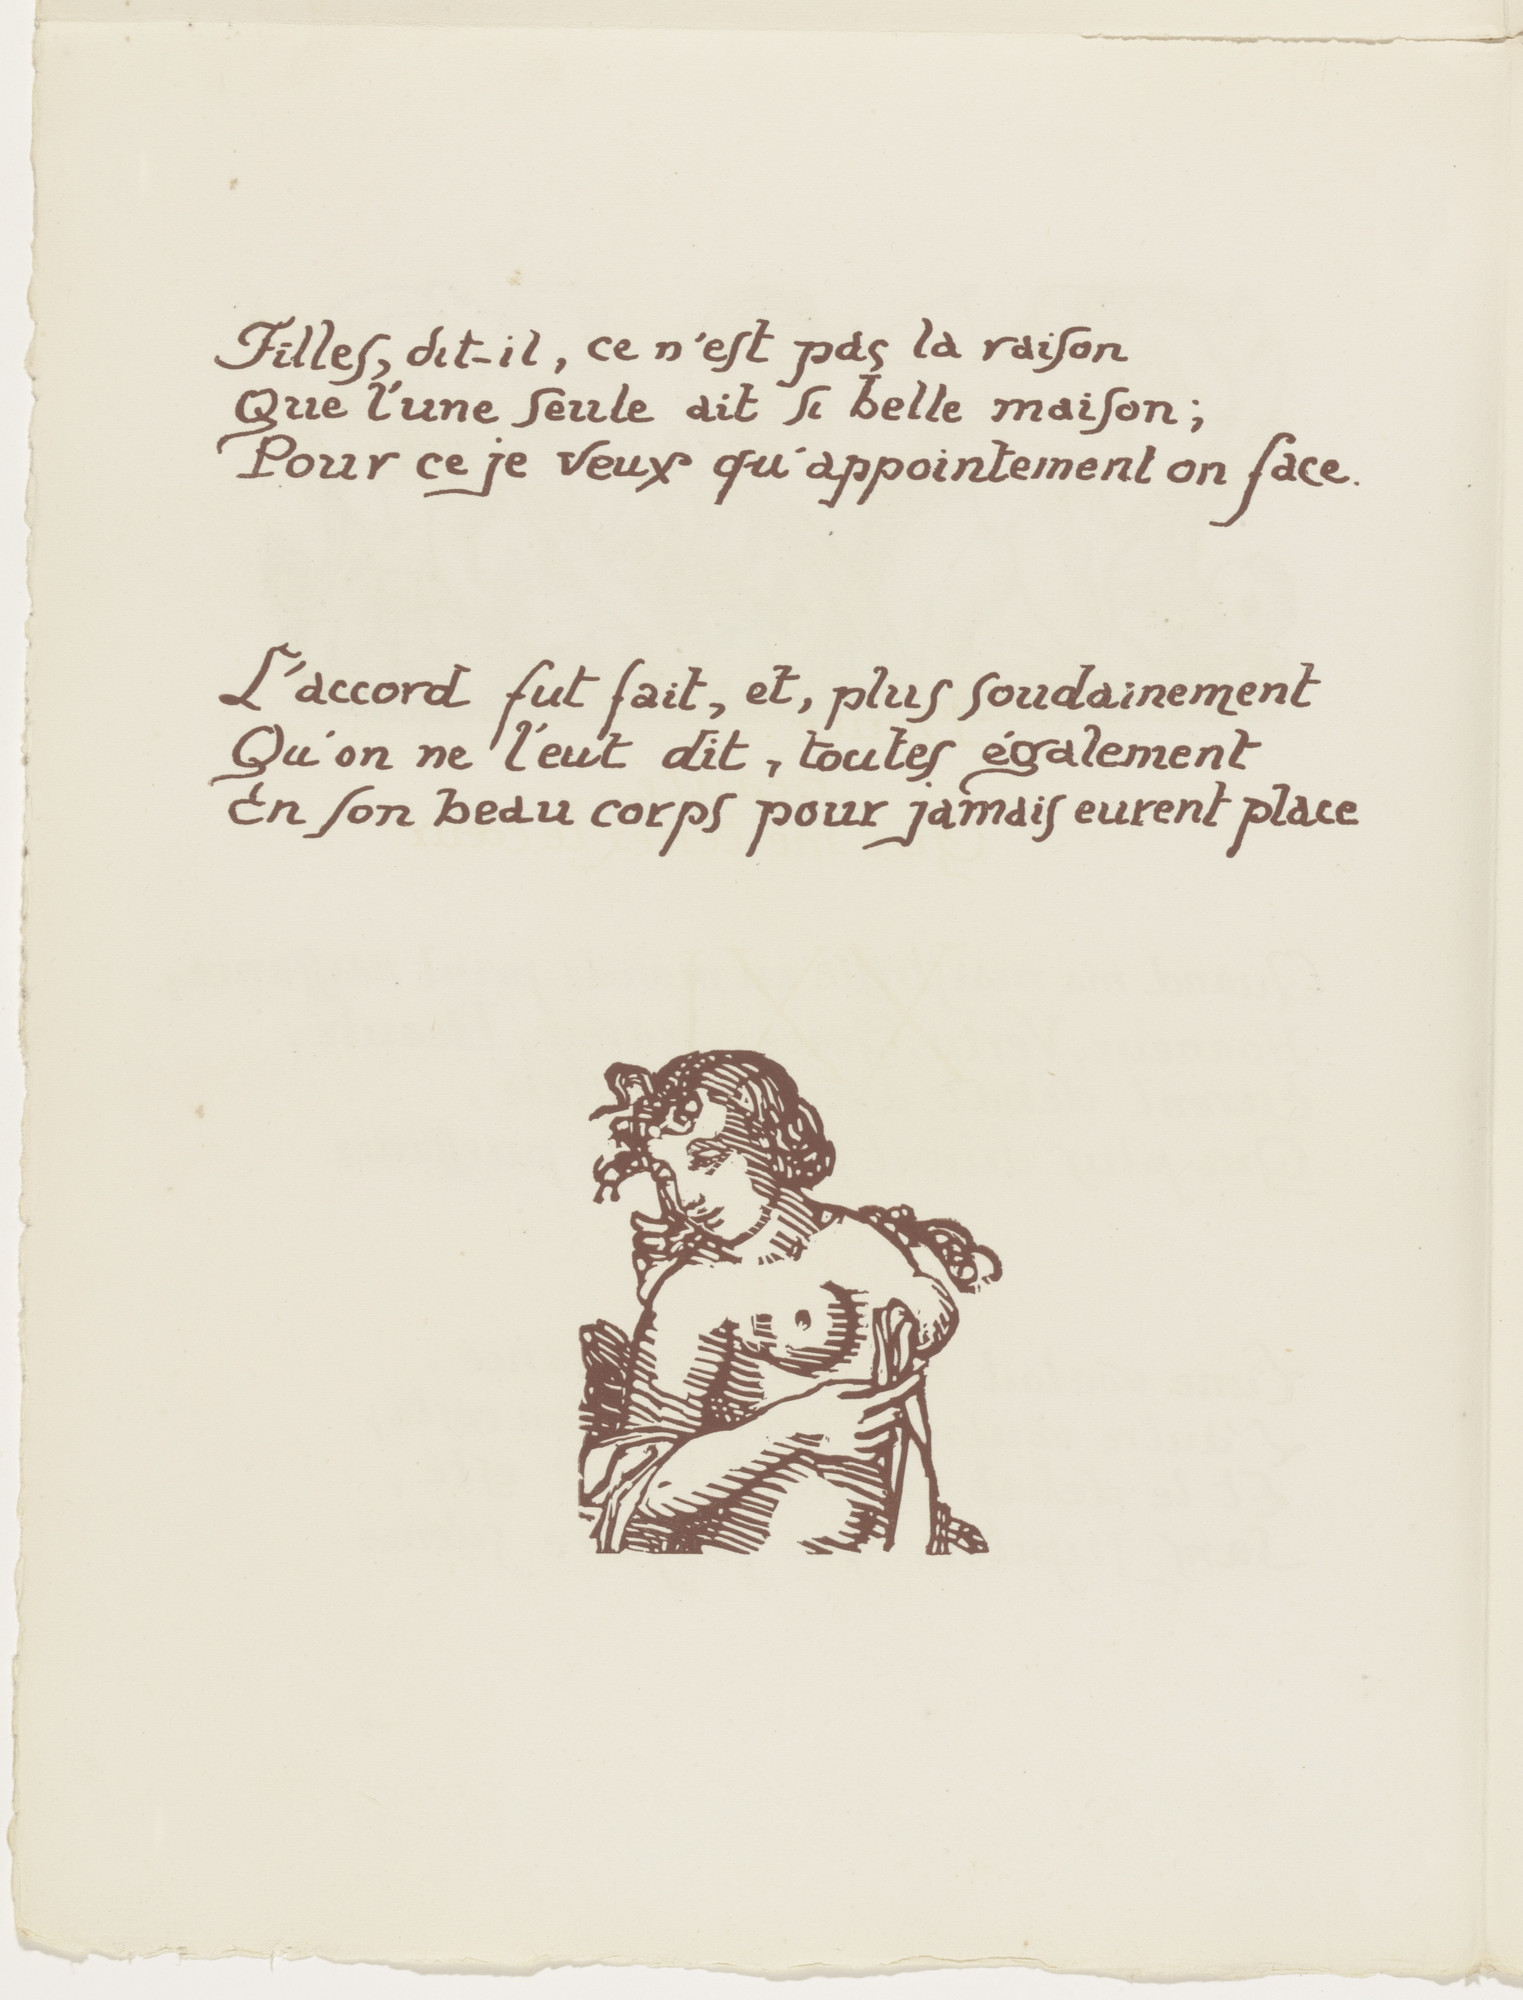 Filles, dit-il, ce n'est pas la raison
Que l'une seule ait si belle maison;
Pour ce je veux qu'appointement on face.
L'accord fut fait, et, plus soudainement
Qu'on ne l'eut dit, toutes également
En son beau corps pour jamais eurent place